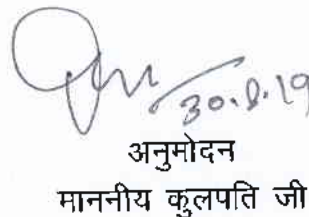 30.8.19
अनुमोदन
माननीय कुलपति जी